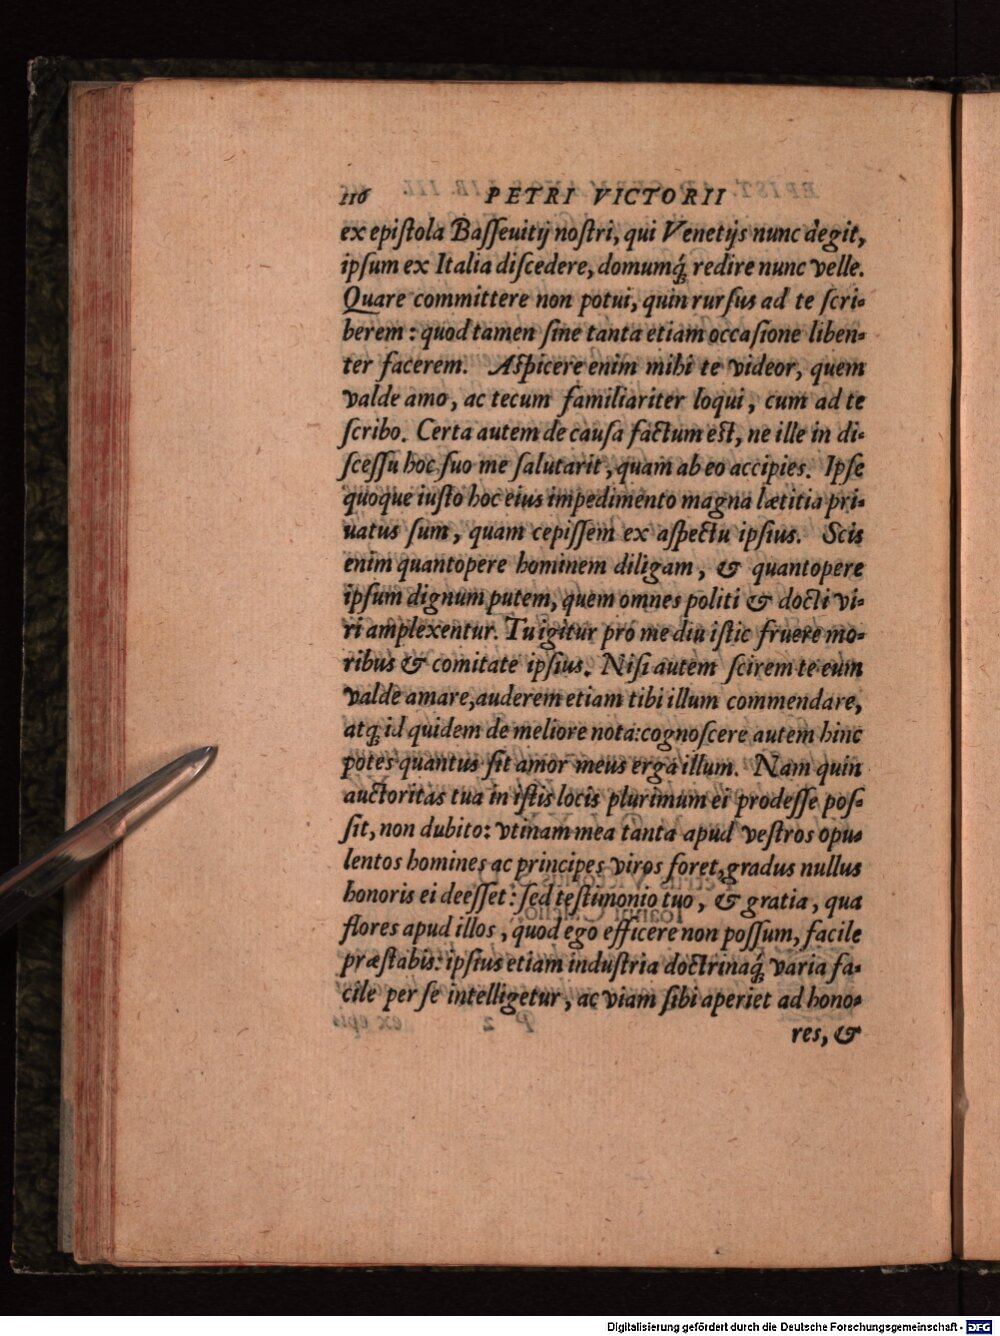 116 PETRI VICTORII
ex epiſtola Baſſeuitij noſtri, qui Venetijs nunc degit,
ipſum ex Italia diſcedere, domumq́; redire nunc velle.
Quare committere non potui, quin rurſus ad te ſcri-
berem: quod tamen ſine tanta etiam occaſione liben-
ter facerem. Aſpicere enim mihi te videor, quem
valde amo, ac tecum familiariter loqui, cum ad te
ſcribo. Certa autem de cauſa factum eſt, ne ille in di-
ſceſſu hoc ſuo me ſalutarit, quam ab eo accipies. Ipſe
quoque iuſto hoc eius impedimento magna lætitia pri-
uatus ſum, quam cepiſſem ex aſpectu ipſius. Scis
enim quantopere hominem diligam, & quantopere
ipſum dignum putem, quem omnes politi & docti vi-
ri amplexentur. Tu igitur pro me diu iſtic fruere mo-
ribus & comitate ipſius. Niſi autem ſcirem te eum
valde amare, auderem etiam tibi illum commendare,
atq; id quidem de meliore nota: cognoſcere autem hinc
potes quantus ſit amor meus erga illum. Nam quin
auctoritas tua in iſtis locis plurimum ei prodeſſe poſ-
ſit, non dubito: vtinam mea tanta apud veſtros opu-
lentos homines ac principes viros foret, gradus nullus
honoris ei deeſſet: ſed teſtimonio tuo, & gratia, qua
flores apud illos, quod ego efficere non poſſum, facile
præſtabis: ipſius etiam induſtria doctrinaq́; varia fa-
cile per ſe intelligetur, ac viam ſibi aperiet ad hono-
res, &
Digitalisierung gefördert durch die Deutsche Forschungsgemeinschaft - DFG